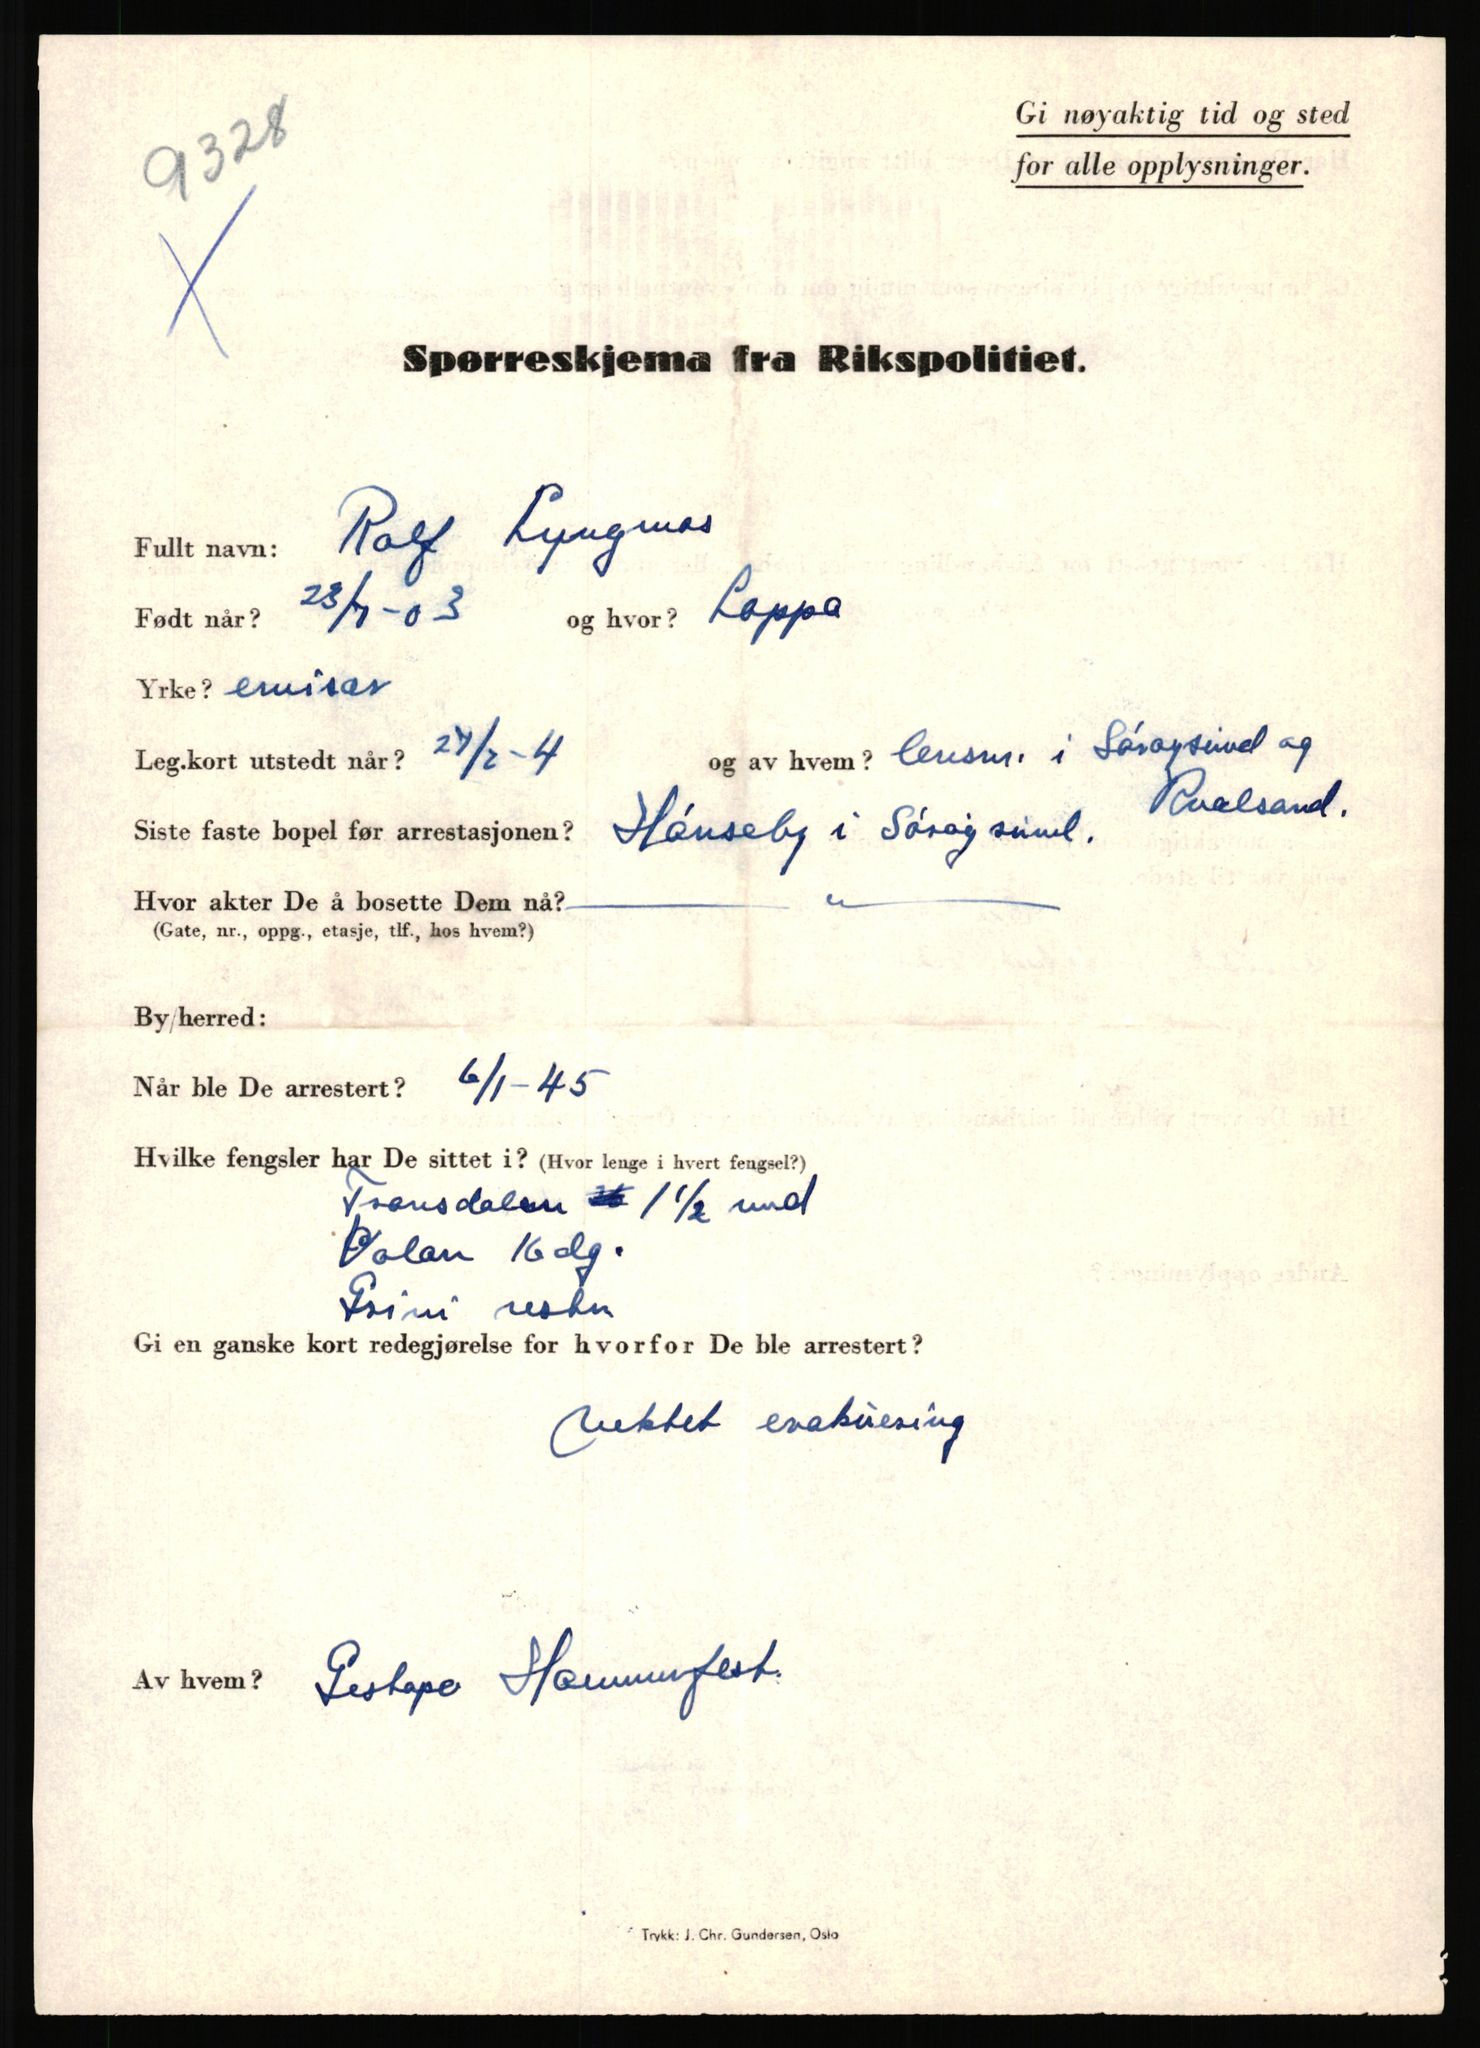 9328
Gi nøyaktig tid og sted
for alle opplysninger.
Spørreskjema fra Rikspolitiet.
Fullt navn: Rolf Lyngmos
Født når? 23/7-03 og hvor? Loppa
Yrke? emisær
Leg.kort utstedt når? 27/2-4 og av hvem? lensm. i Sörøysund og
Kvalsund.
Siste faste bopel før arrestasjonen? Hónseby i Söröysund.
Hvor akter De å bosette Dem nå? — " —
(Gate, nr., oppg., etasje, tlf., hos hvem?)
By/herred:
Når ble De arrestert? 6/1-45
Hvilke fengsler har De sittet i? (Hvor lenge i hvert fengsel?)
Tromsdalen 1 1/2 mnd
Volan 16 dg.
Grini resten
Gi en ganske kort redegjørelse for hvorfor De ble arrestert?
Nektet evakuering
Av hvem? Gestapo Hammerfest.
Trykk: J. Chr. Gundersen, Oslo